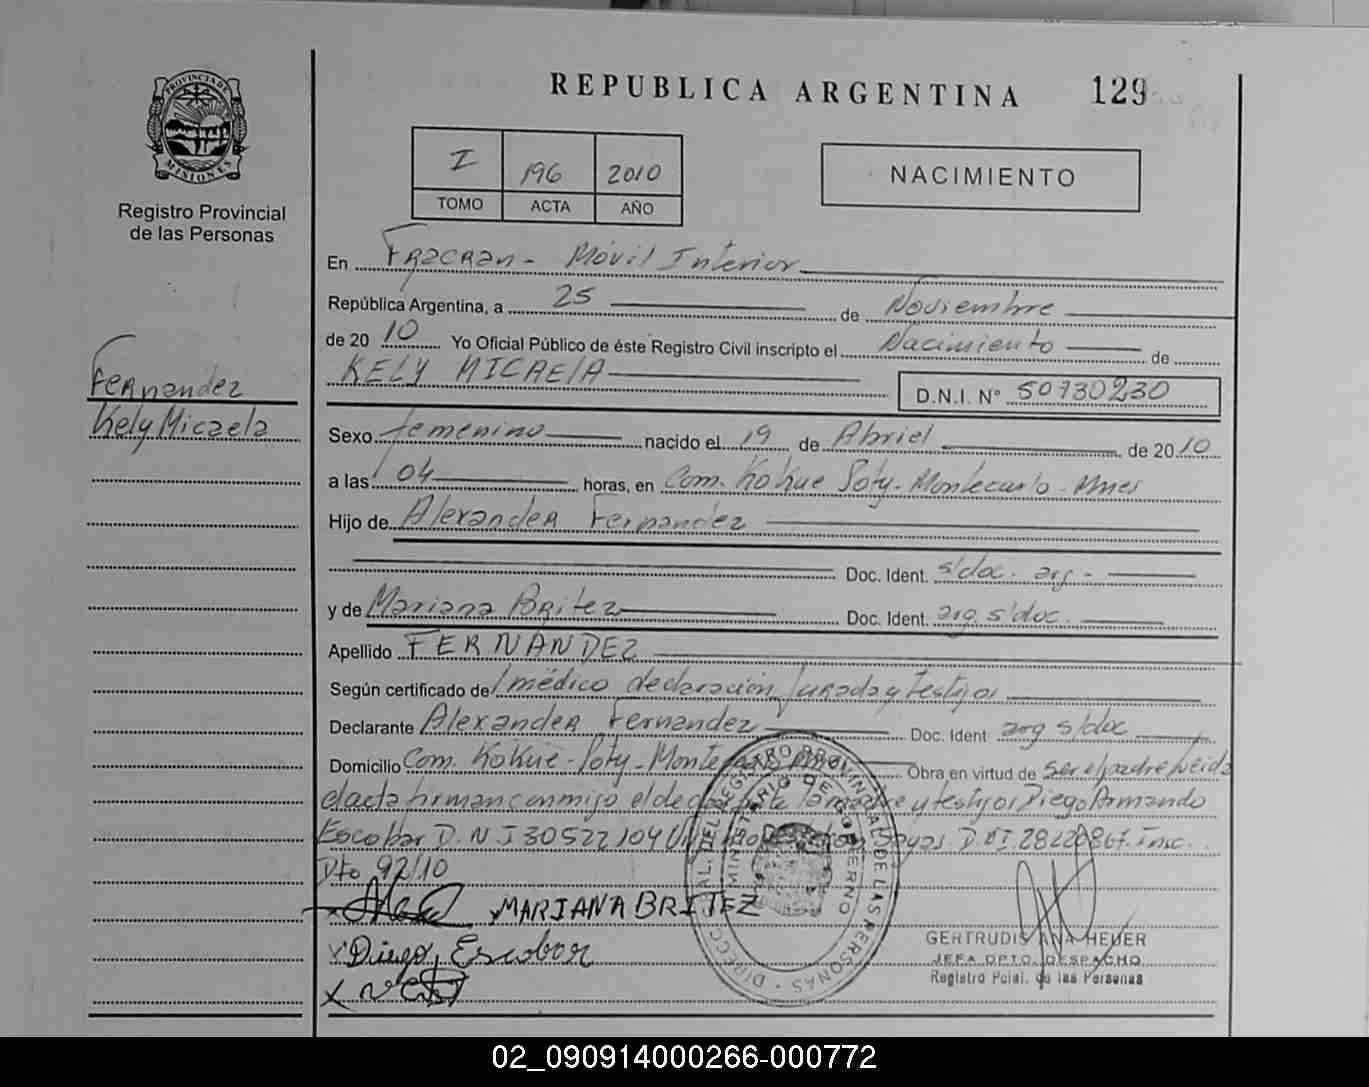 REPUBLICA ARGENTINA 129
PROVINCIA DE MISIONES
Registro Provincial
de las Personas
I 196 2010
TOMO ACTA AÑO
NACIMIENTO
Fernandez
Kely Micaela
En Fracran - Móvil Interior
República Argentina, a 25 de Noviembre
de 20 10 Yo Oficial Público de éste Registro Civil inscripto el Nacimiento de
KELY MICAELA D.N.I. N° 50730230
Sexo femenino nacido el 19 de Abriel de 20 10
a las 04 horas, en Com. Kokue Poty - Montecarlo - Mnes
Hijo de Alexander Fernandez
Doc. Ident. s/doc. arg -
y de Mariana Britez Doc. Ident. arg s/doc.
Apellido FERNANDEZ
Según certificado de médico declaración Jurada y testigos
Declarante Alexander Fernandez Doc. Ident arg s/doc
Domicilio Com. Kokue - Poty - Obra en virtud de ser el padre leida
el acta firman conmigo el la madre y testigos Diego Armando
Escobar D.N.I 30522104 D.N.I 28220867. Insc.
Dto 92/10
MARIANA BRITEZ
x Diego Escobar
DIRECC. GRAL. DEL REGISTRO PROVINCIAL DE LAS PERSONAS
MINISTERIO DE GOBIERNO
GERTRUDIS ANA HEUER
JEFA DPTO. DESPACHO
Registro Pcial. de las Personas
02_090914000266-000772